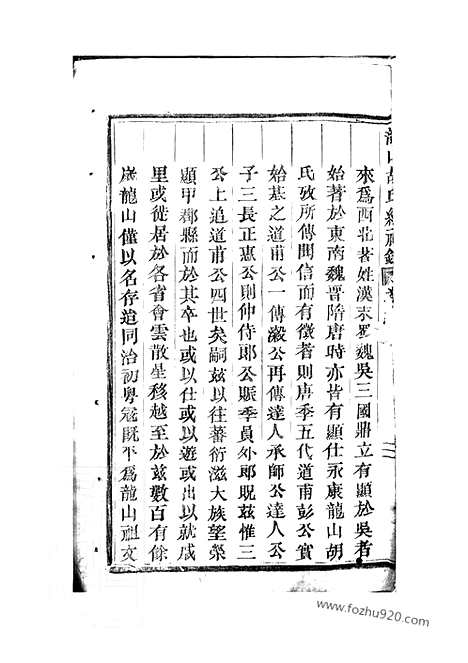 來爲西北著姓漢末蜀魏吳三國鼎立有顯於吳者
始著於東南魏晉隋唐時亦皆有顯仕永康龍山胡
氏攷所傳聞信而有徵者則唐季五代道甫彭公實
始基之道甫公一傳澱公再傳達人承師公達人公
子三長正惠公則仲侍郎公賑季員外郎旣茲惟三
公上追道甫公四世矣嗣茲以往蕃衍滋大族望榮
顯甲郡縣而於其卒也或以仕或以遊或出以就戚
里或徙居於各省會雲散星移越至於茲數百有餘
歲龍山僅以名存道同治初粤寇旣平爲龍山祖文
www.fozhu920.com